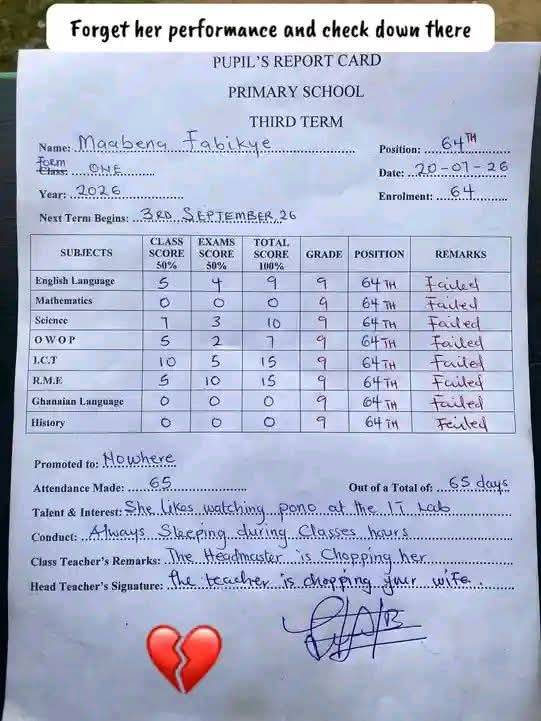 Forget her performance and check down there
PUPIL'S REPORT CARD
PRIMARY SCHOOL
THIRD TERM
Name: Maabena Fabikye Position: 64TH
Form
Class: ONE Date: 20-07-26
Year: 2026 Enrolment: 64
Next Term Begins: 3RD SEPTEMBER, 26
SUBJECTS CLASS SCORE 50% EXAMS SCORE 50% TOTAL SCORE 100% GRADE POSITION REMARKS
English Language 5 4 9 9 64TH Failed
Mathematics 0 0 0 9 64TH Failed
Science 7 3 10 9 64TH Failed
O W O P 5 2 7 9 64TH Failed
I.C.T 10 5 15 9 64TH Failed
R.M.E 5 10 15 9 64TH Failed
Ghanaian Language 0 0 0 9 64TH Failed
History 0 0 0 9 64TH Feiled
Promoted to: Nowhere
Attendance Made: 65 Out of a Total of: 65 days
Talent & Interest: She likes watching pono at the IT Lab
Conduct: Always Sleeping during Classes hours
Class Teacher's Remarks: The Headmaster is Chopping her
Head Teacher's Signature: the teacher is chopping your wife.